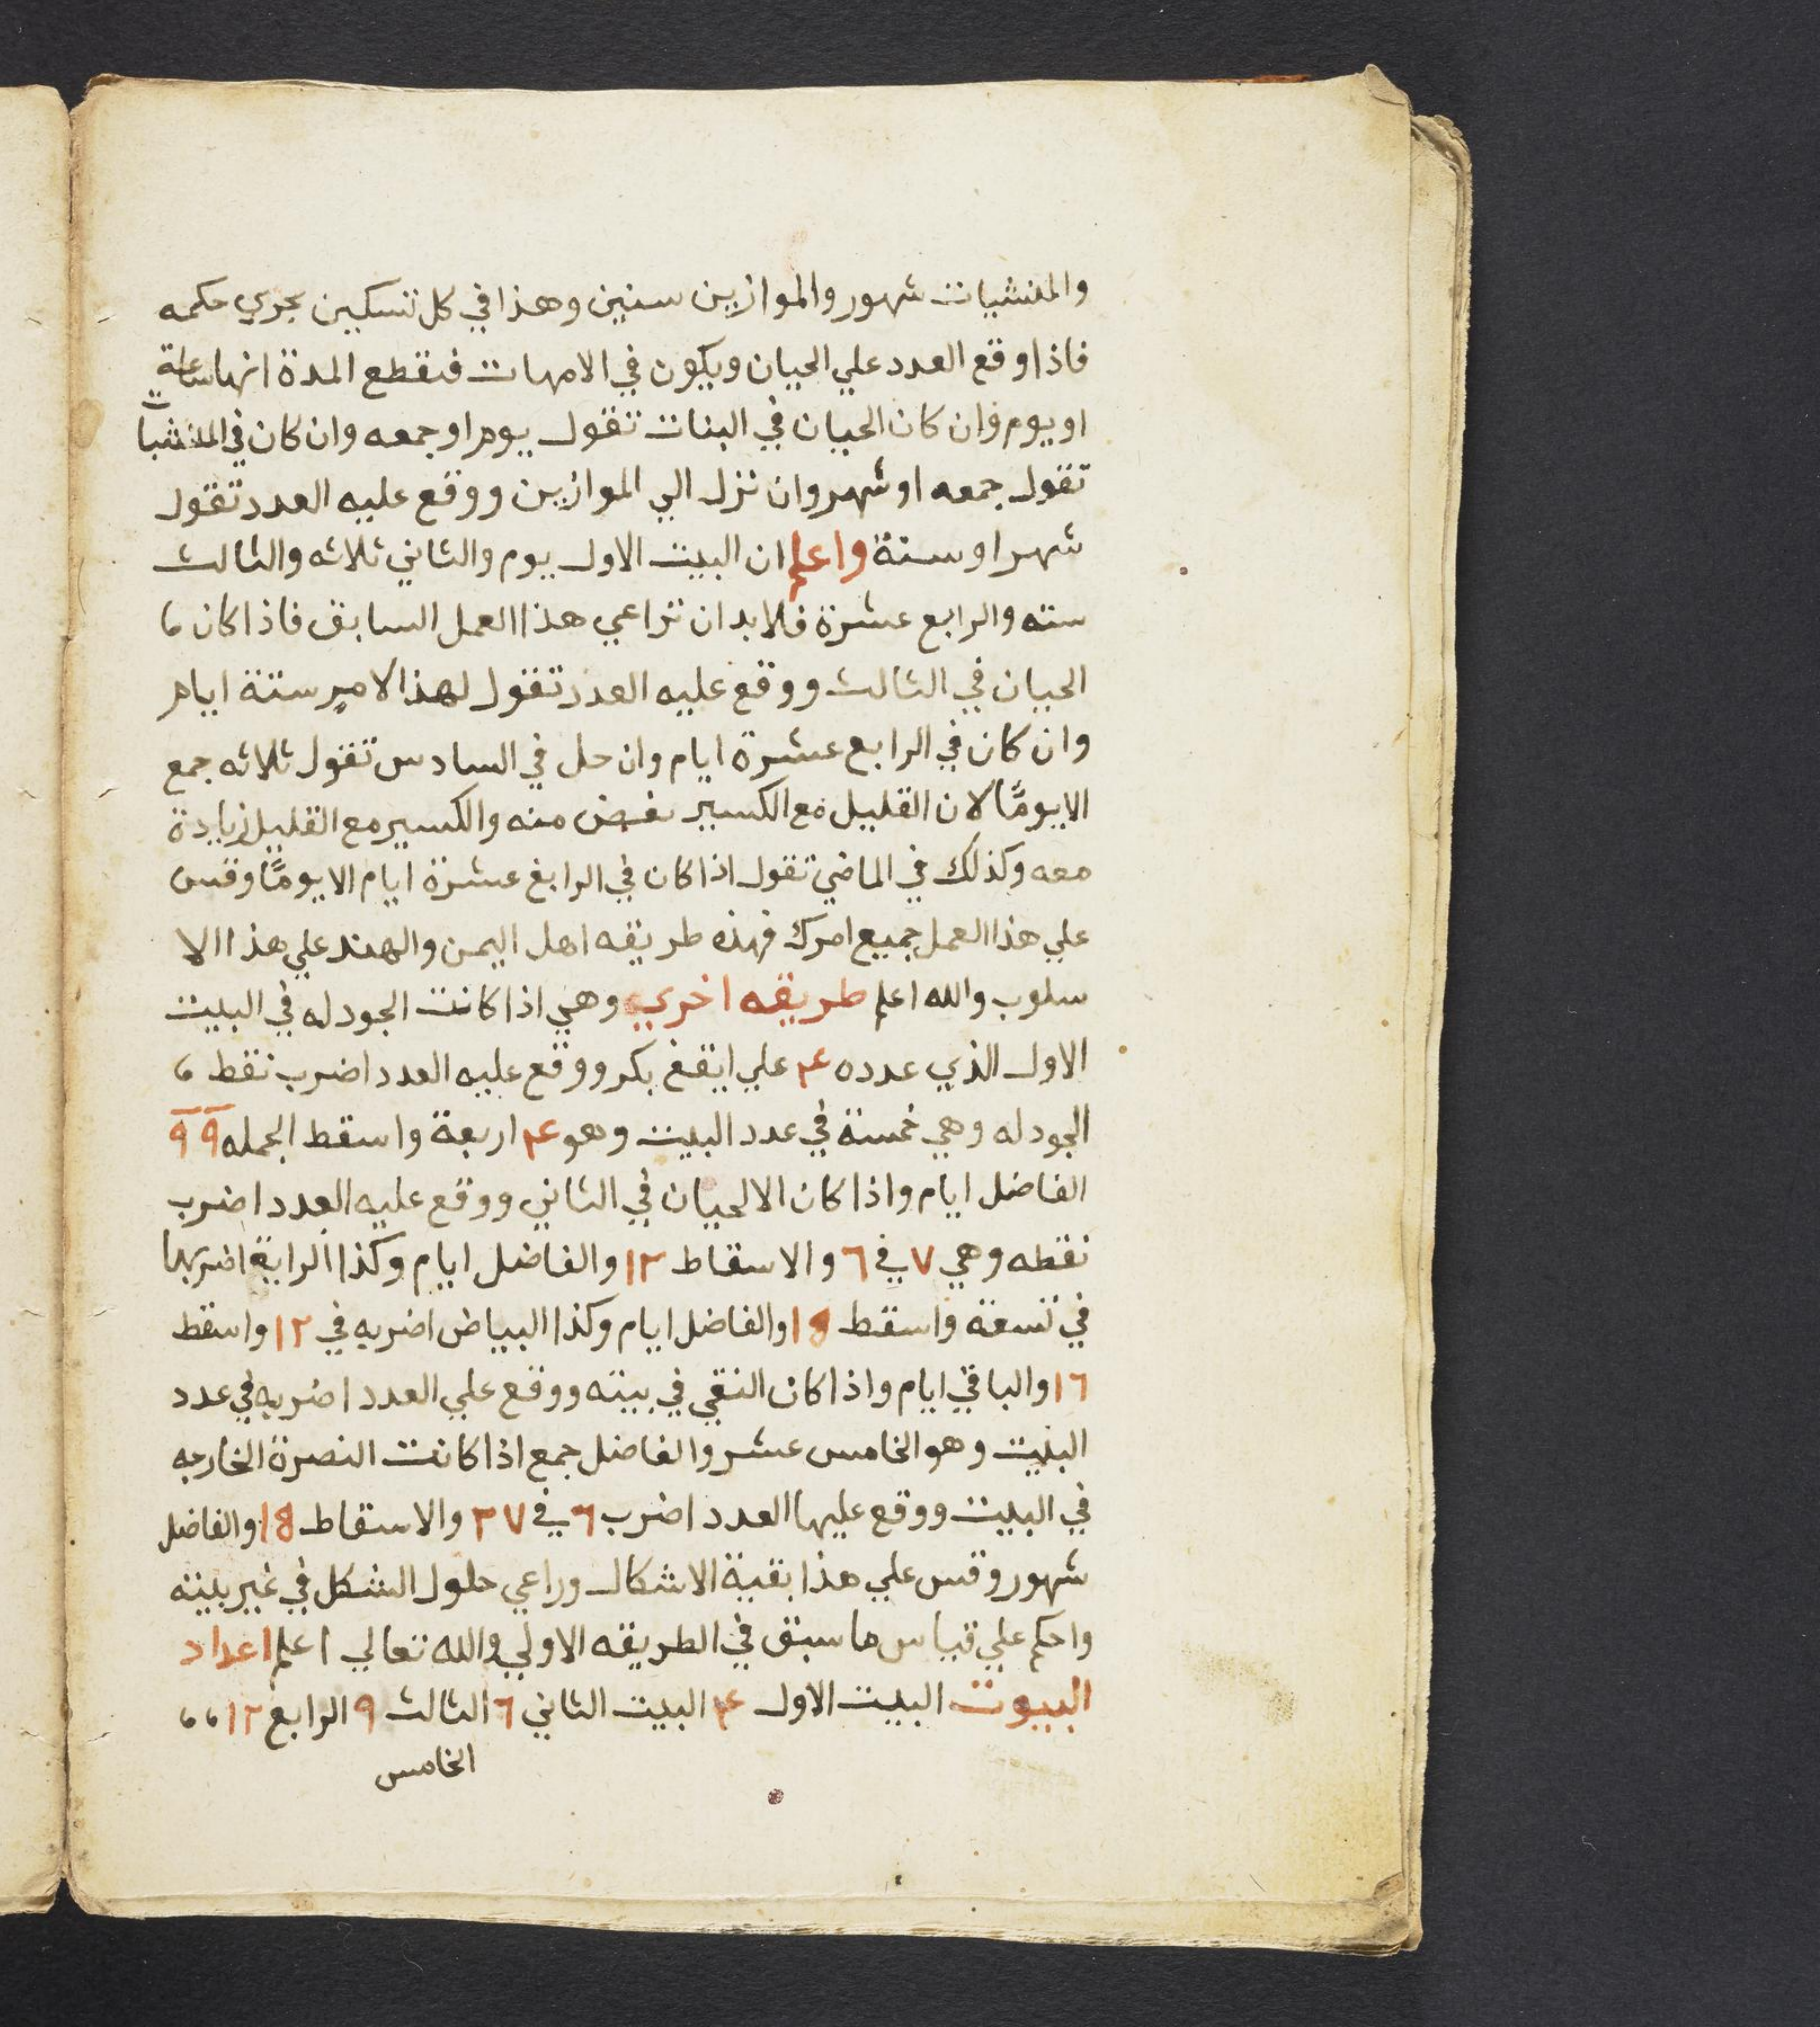 والمنشيات شهور والموازين سنين وهذا في كل تسكين يجري حكمه
فاذا وقع العدد علي الحيان ويكون في الامهات فتقطع المدة انها ساعة
او يوم وان كان الحيان في البنات تقول يوم او جمعه وان كان في المنشيات
تقول جمعه او شهر وان نزل الي الموازين ووقع عليه العدد تقول
شهر او سنة واعلم ان البيت الاول يوم والثاني ثلاثه والثالث
سته والرابع عشرة فلابد ان تراعي هذا العمل السابق فاذا كان
الحيان في الثالث ووقع عليه العدد تقول لهذا الامر ستة ايام
وان كان في الرابع عشرة ايام وان حل في السادس تقول ثلاثه جمع
الا يومًا لان القليل مع الكسير نغض منه والكسير مع القليل زيادة
معه وكذلك في الماضي تقول اذا كان في الرابع عشرة ايام الا يومًا وقس
علي هذا العمل جميع امرك فهذه طريقه اهل اليمن والهند علي هذا الا
سلوب والله اعلم طريقه اخري وهي اذا كانت الجودله في البيت
الاول الذي عدده ٤ علي ايقغ بكر ووقع عليه العدد اضرب نقط
الجودله وهي خمسة في عدد البيت وهو ٤ اربعة واسقط الجمله ٩ ٩
الفاضل ايام واذا كان الالحيان في الثاني ووقع عليه العدد اضرب
نقطه وهي ٧ في ٦ والاسقاط ١٢ والفاضل ايام وكذا الراية اضربها
في تسعة واسقط 18 والفاضل ايام وكذا البياض اضربه في ١٢ واسقط
١٦ والباقي ايام واذا كان النقي في بيته ووقع علي العدد اضربه في عدد
البيت وهو الخامس عشر والفاضل جمع اذا كانت النصرة الخارجه
في البيت ووقع عليها العدد اضرب ٦ في ٢٧ والاسقاط 18 والفاضل
شهور وقس علي هذا بقية الاشكال وراعي حلول الشكل في غير بيته
واحكم علي قياس ما سبق في الطريقه الاولي والله تعالي اعلم اعداد
البيوت البيت الاول ٤ البيت الثاني ٦ الثالث ٩ الرابع ١٢
الخامس